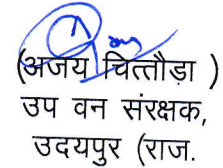 (अजय चित्तौड़ा )
उप वन संरक्षक,
उदयपुर (राज.